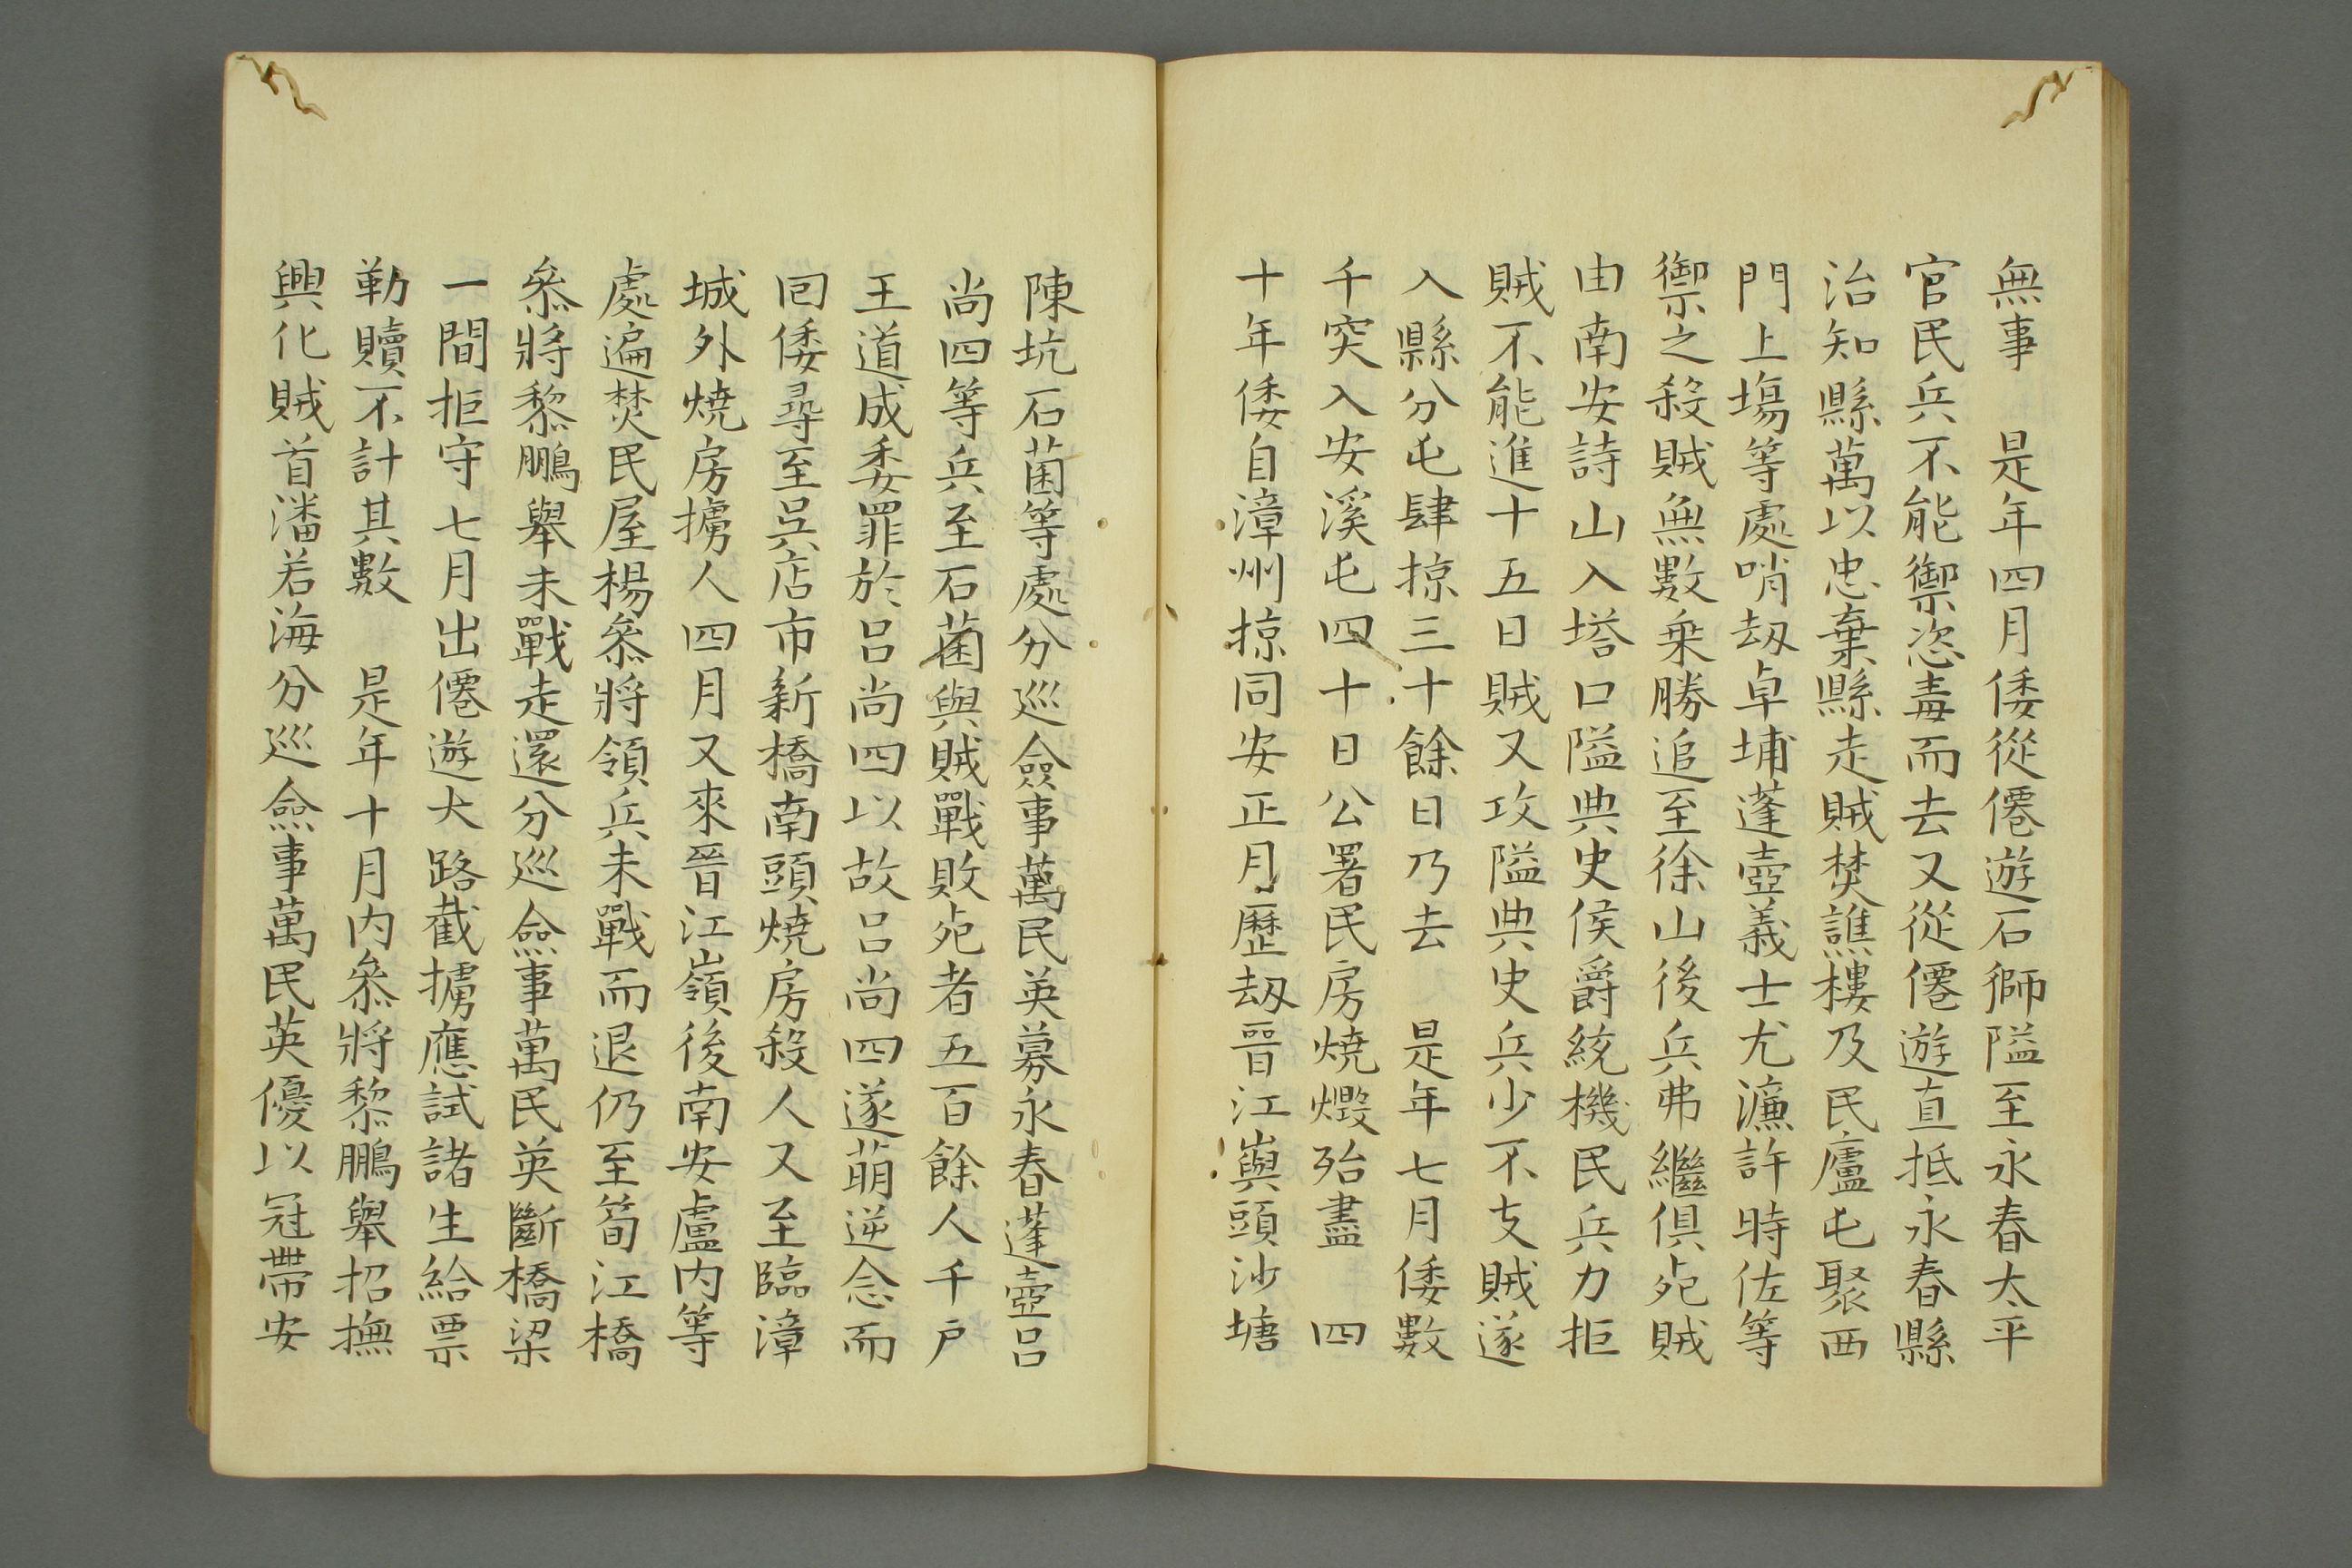 無事　是年四月倭從僊遊石獅隘至永春太平
官民兵不能禦恣毒而去又從僊遊直抵永春縣
治知縣萬以忠棄縣走賊焚譙樓及民廬屯聚西
門上塲等處哨刼卓埔蓬壺義士尤濂許時佐等
禦之殺賊無數乗勝追至徐山後兵弗繼俱死賊
由南安詩山入塔口隘典史侯爵統機民兵力拒
賊不能進十五日賊又攻隘典史兵少不支賊遂
入縣分屯肆掠三十餘日乃去　是年七月倭數
千突入安溪屯四十日公署民房燒燬殆盡　四
十年倭自漳州掠同安正月歷刼晉江嶼頭沙塘
陳坑石菌等處分巡僉事萬民英募永春蓬壺呂
尚四等兵至石菌與賊戰敗死者五百餘人千戶
王道成委罪於呂尚四以故呂尚四遂萌逆念而
囘倭尋至吳店市新橋南頭燒房殺人又至臨漳
城外燒房擄人四月又來晉江嶺後南安盧内等
處遍焚民屋楊叅將領兵未戰而退仍至筍江橋
叅將黎鵬舉未戰走還分巡僉事萬民英斷橋梁
一間拒守七月出僊遊大路截擄應試諸生給票
勒贖不計其數　是年十月内叅將黎鵬舉招撫
興化賊首潘若海分巡僉事萬民英優以冠帶安